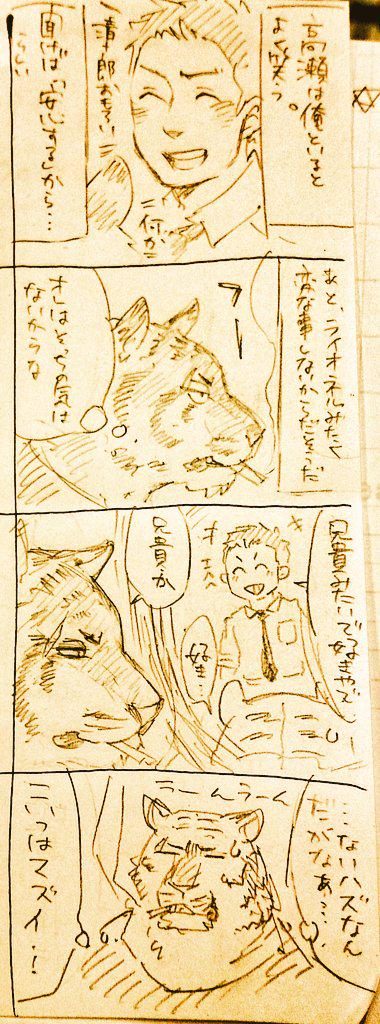 高瀬は俺といると
よく笑う。
清十郎おもろい
何が
聞けば「安心するから…
らしい
あと、ライオネルみたく
変な事しないからだそうだ
フー
オレはそっちの気は
ないからな
兄貴みたいで好きやで
兄貴か
好き…
…ないハズなん
だがなぁ…
うーんうーん
こいつはマズイ…!